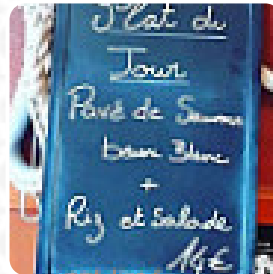 Plat du
Jour
Pavé de Saumon
beurre Blanc
+
Riz et Salade
16€